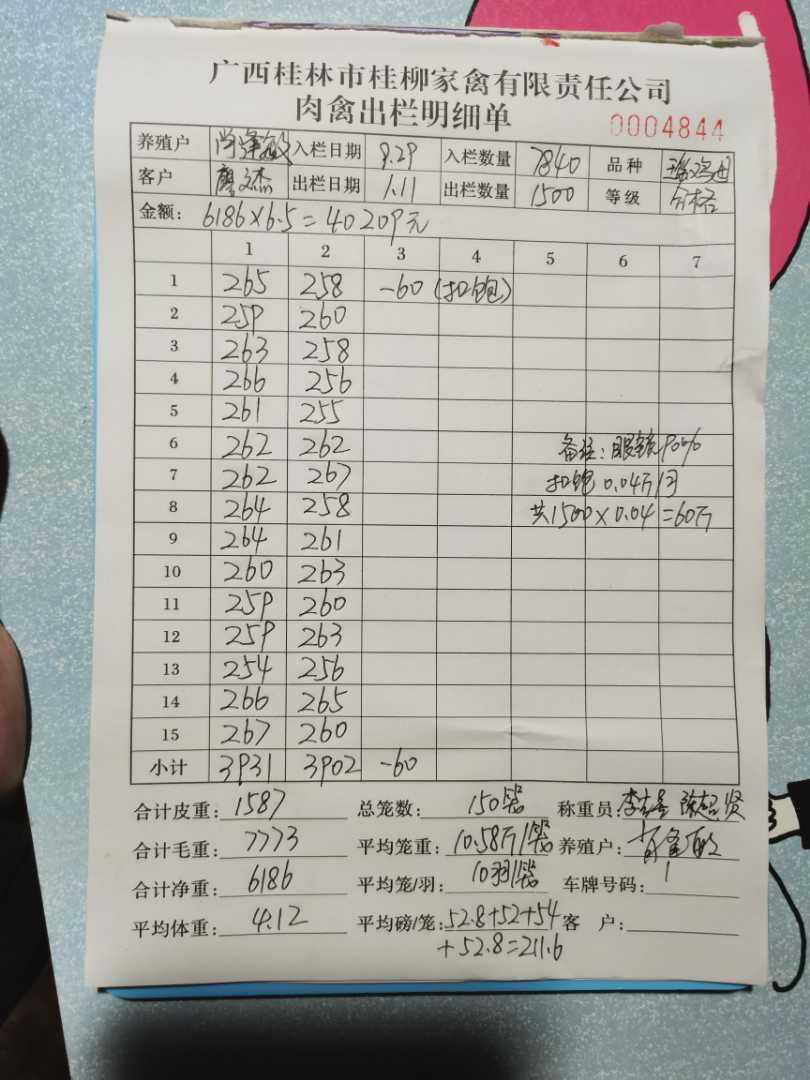 广西桂林市桂柳家禽有限责任公司
肉禽出栏明细单
0004844
养殖户 入栏日期 9.29 入栏数量 7840 品种
客户 廖文杰 出栏日期 1.11 出栏数量 1500 等级 合格
金额: 6186×6.5=40209元
1 2 3 4 5 6 7
1 265 258 -60 (扣饱)
2 259 260
3 263 258
4 266 256
5 261 255
6 262 262 备注: 眼镜90%
7 262 267 扣饱 0.04斤/羽
8 264 258 共1500×0.04=60斤
9 264 261
10 260 263
11 259 260
12 259 263
13 254 256
14 266 265
15 267 260
小计 3931 3902 -60
合计皮重: 1587 总笼数: 150笼 称重员:
合计毛重: 7773 平均笼重: 10.58斤/笼 养殖户:
合计净重: 6186 平均笼/羽: 10羽/笼 车牌号码:
平均体重: 4.12 平均磅/笼: 52.8+52+54 客 户:
+52.8=211.6